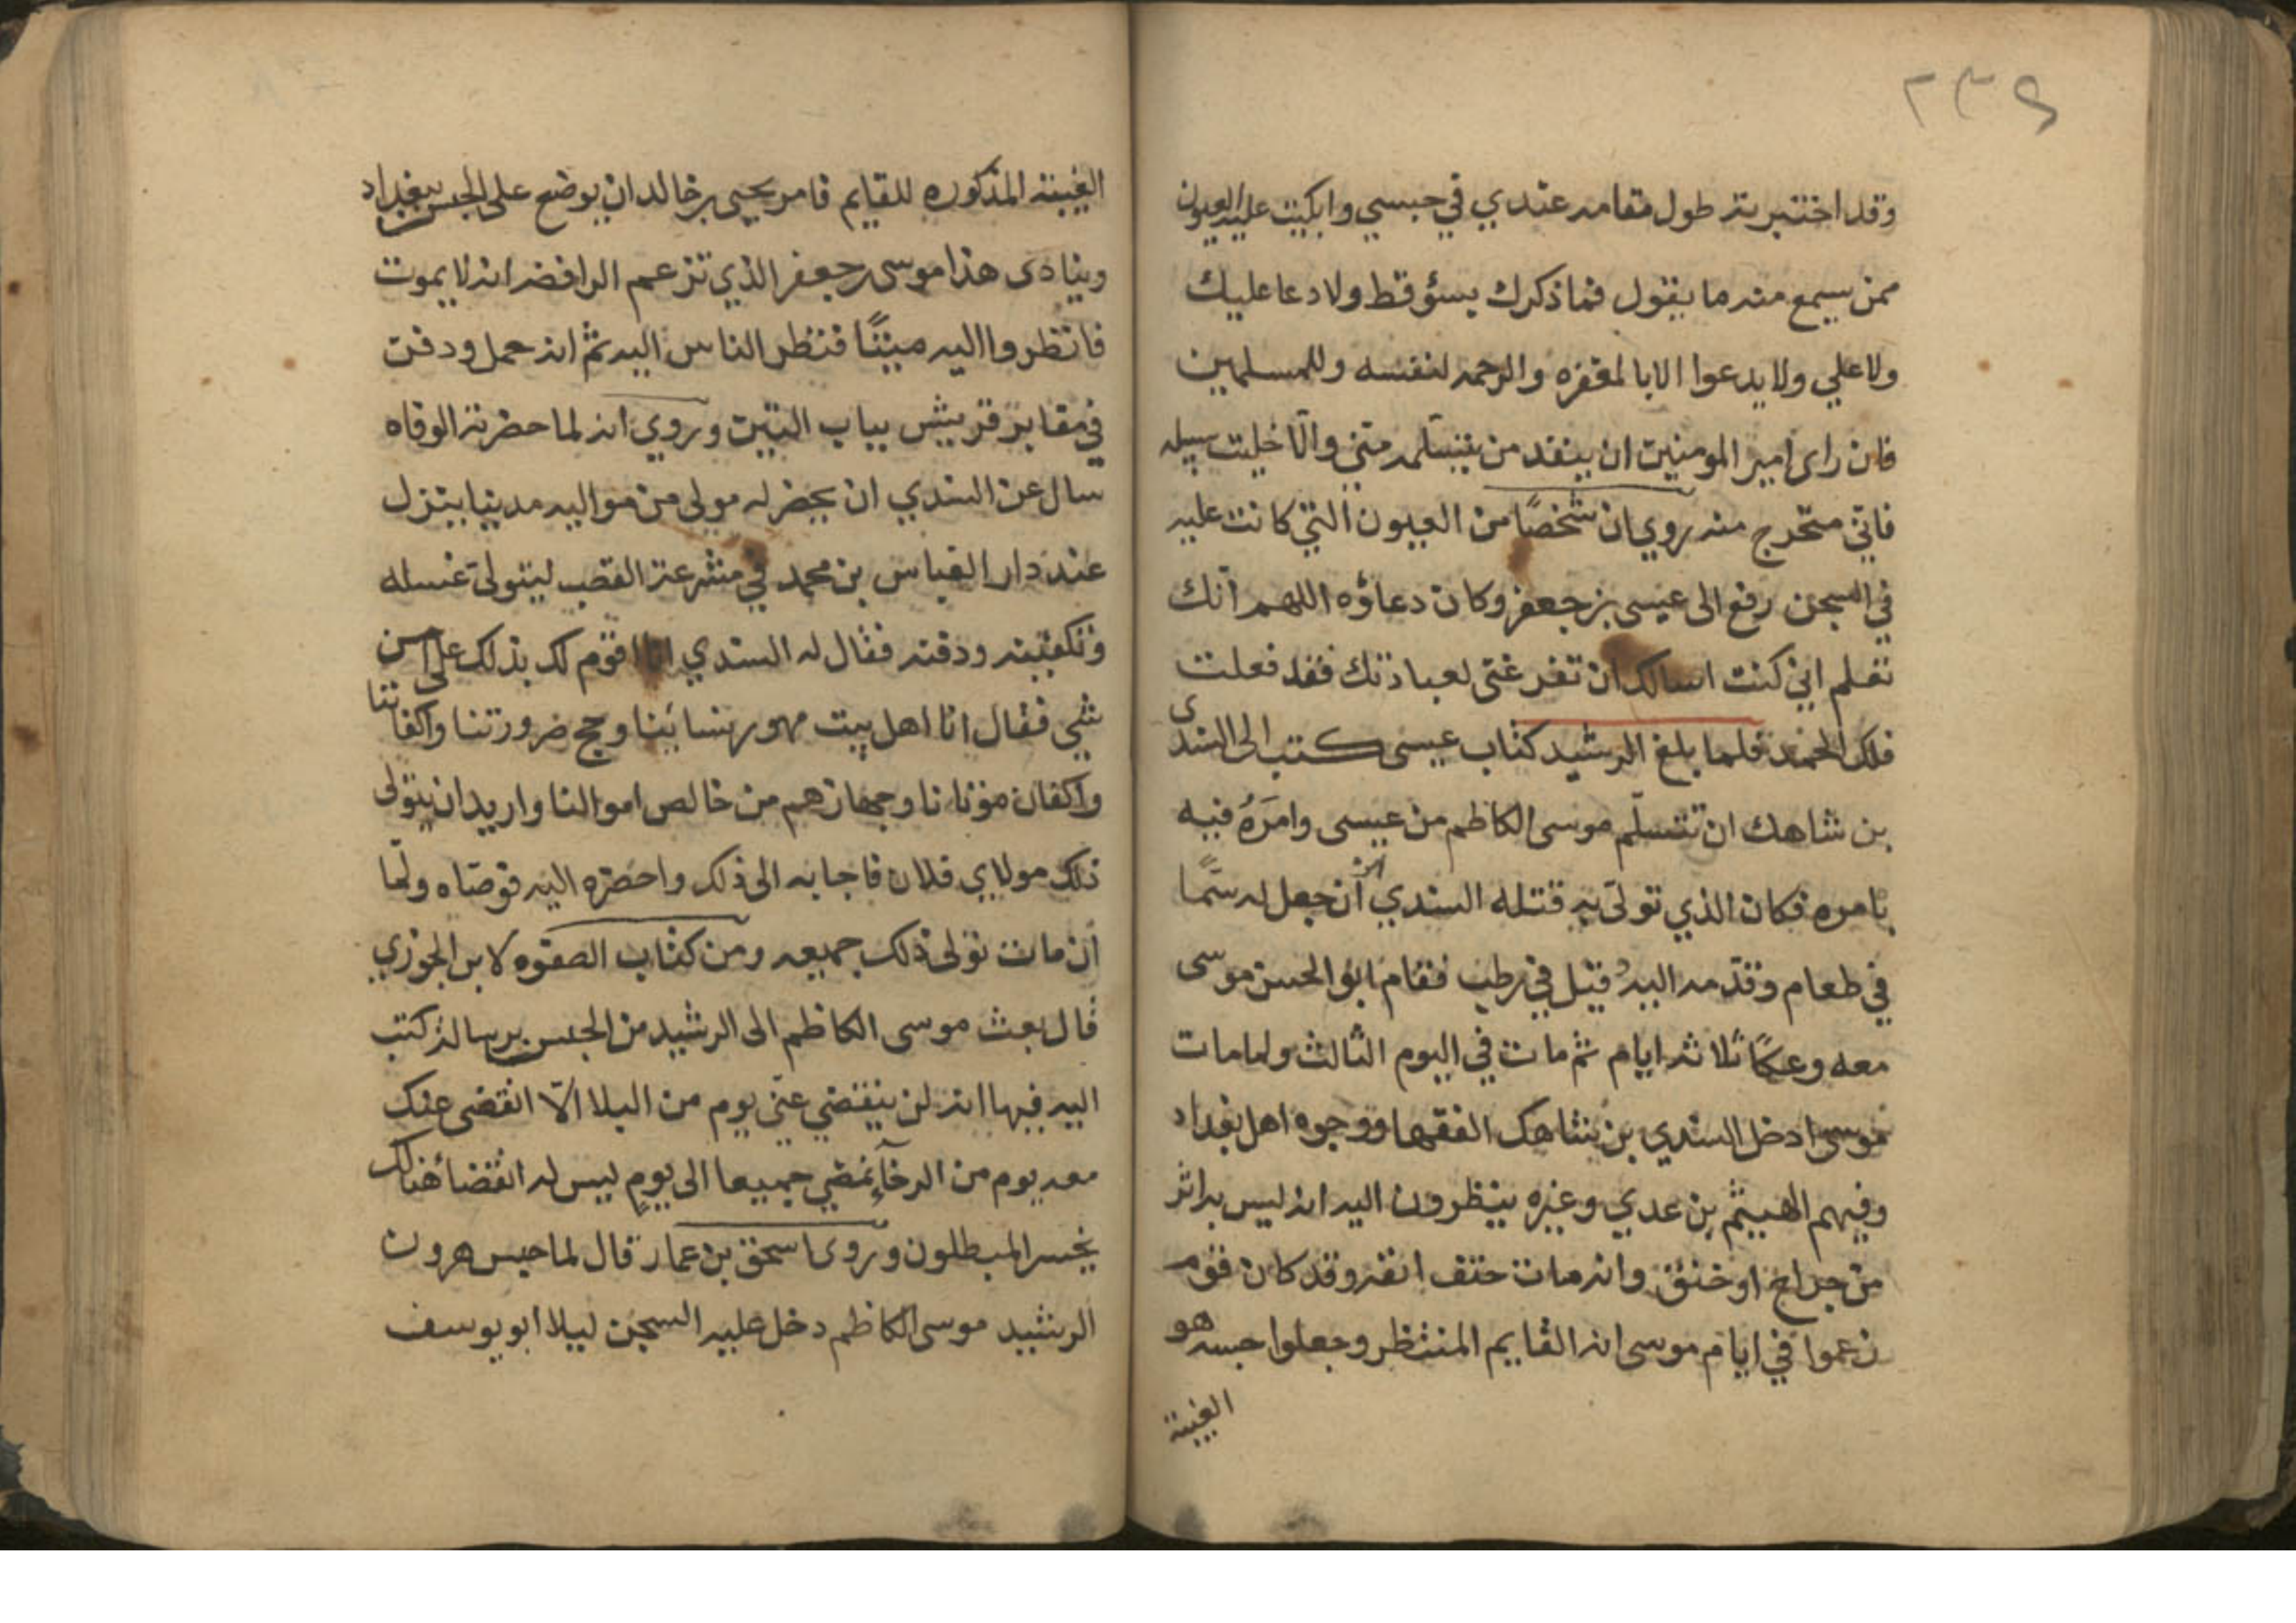 ٢٣٩
وقد اختبرته طول مقامه عندي في حبسي وابكيت عليه العيون
ممن سيمع منه ما يقول فما ذكرك بسؤ قط ولا دعا عليك
ولا علي ولا يدعوا الا بالمغفره والرحمه لنفسه وللمسلمين
فان راى امير المومنين ان ينفد من يتسلمه مني والّا خليت سبيله
فاني متحرج منه روي ان شخصًا من العيون التي كانت عليه
في السجن رفع الى عيسى بن جعفر وكان دعاؤه اللهم انك
تعلم اني كنت اسالك ان تفرغني لعبادتك فقد فعلت
فلك الحمد فلما بلغ الرشيد كتاب عيسى كتب الى السندي
بن شاهك ان تتسلّم موسى الكاظم من عيسى وامَرَهُ فيه
بامره فكان الذي تولى به قتله السندي ان جعل له سمًا
في طعام وقدّمه اليه وقيل في رطب فقام ابو الحسن موسى
معه وعكًا ثلاثه ايام ثم مات في اليوم الثالث ولما مات
موسى ادخل السندي بن شاهك الفقها ووجوه اهل بغداد
وفيهم الهيثم بن عدي وغيره ينظرون اليه انه ليس به اثر
من جراح او خنق وانه مات حتف انفه وقد كان قوم
زعموا في ايام موسى انه القايم المنتظر وجعلوا حبسه هو
الغيبة
الغيبة المذكوره للقايم فامر يحيى بن خالد ان يوضع على الجسر ببغداد
وينادى هذا موسى بن جعفر الذي تزعم الرافضه انه لا يموت
فانظروا اليه ميتًا فنظر الناس اليه ثم انه حمل ودفن
في مقابر قريش بباب التين وروي انه لما حضرته الوفاه
سال عن السندي ان يحضر له مولى من مواليه مدينيا ينزل
عند دار العباس بن محمد في مشرعة القصب ليتولى غسله
وتكفينه ودفنه فقال له السندي انا اقوم لك بذلك على احسن
شي فقال انا اهل بيت مهور نسائنا وحج ضرورتنا واكفاننا
واكفان موتانا وجهازهم من خالص اموالنا واريد ان يتولى
ذلك مولاي فلان فاجابه الى ذلك واحضره اليه فوصاه ولمّا
ان مات تولى ذلك جميعه ومن كتاب الصفوه لابن الجوزي
قال بعث موسى الكاظم الى الرشيد من الحبس برسالة كتب
اليه فيها انه لن ينقضي عنّي يوم من البلا الّا انقضى عنك
معه يوم من الرخآء نمضي جميعا الى يومٍ ليس له انقضا هنالك
يخسر المبطلون وروى اسحق بن عمار قال لما حبس هرون
الرشيد موسى الكاظم دخل عليه السجن ليلا ابو يوسف